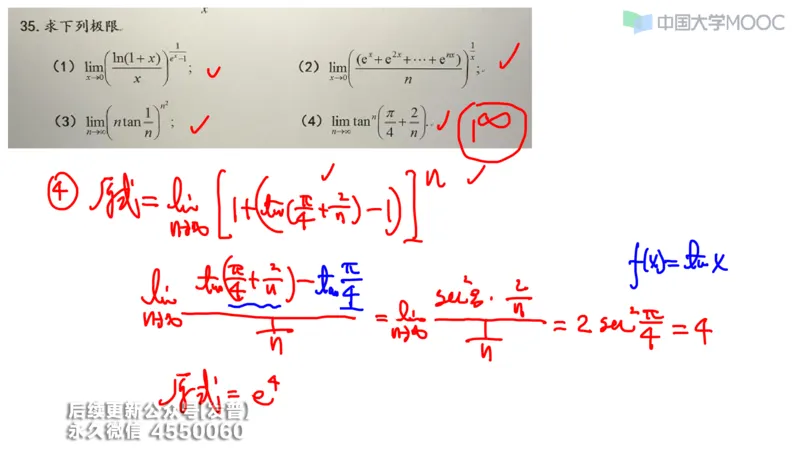 x
中国大学MOOC
35. 求下列极限.
(1) lim_{x→0} (ln(1+x)/x)^{1/(e^x−1)};
(2) lim_{x→0} ((e^x+e^{2x}+⋯+e^{nx})/n)^{1/x};
(3) lim_{n→∞} (n tan 1/n)^{n²};
(4) lim_{n→∞} tan^n(π/4+2/n).
1^∞
④ 原式=lim_{n→∞} [1+(tan(π/4+2/n)−1)]^n
f(x)=tan x
lim_{n→∞} (tan(π/4+2/n)−tan π/4)/(1/n) = lim_{n→∞} (sec²ξ·2/n)/(1/n) = 2 sec² π/4 = 4
原式=e^4
后续更新公众号(发普)
永久微信 4550060